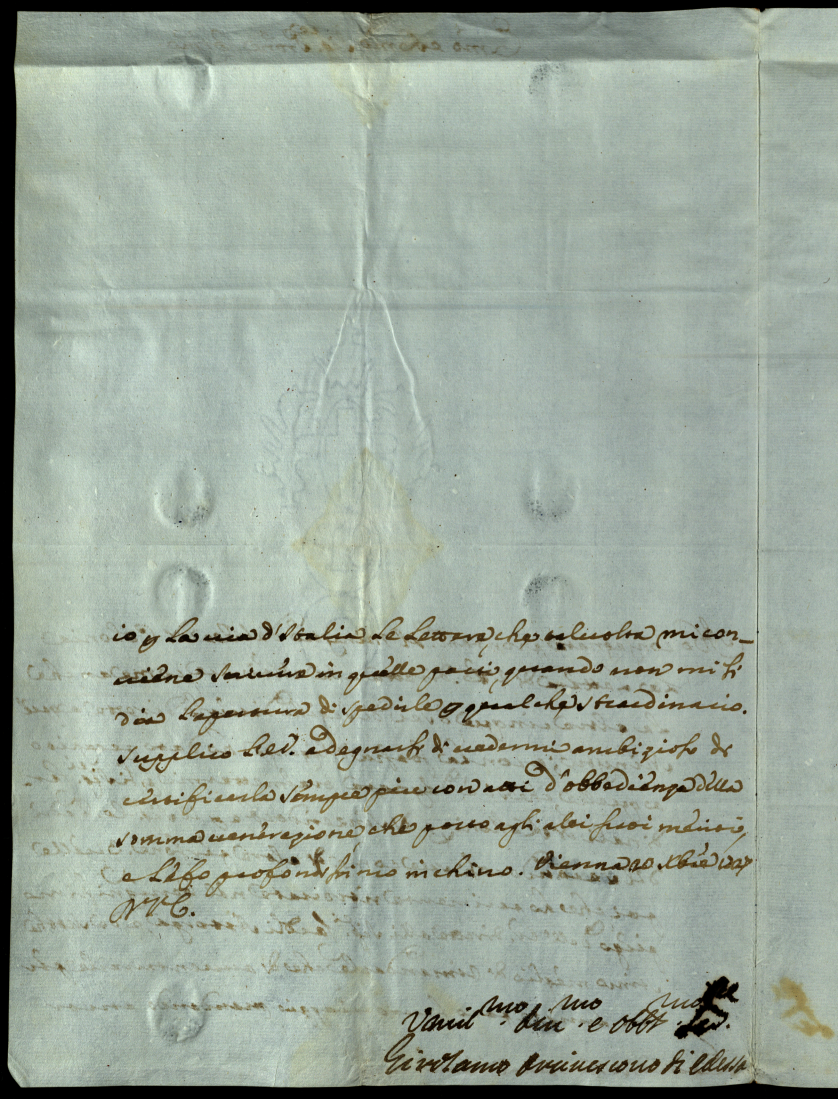 io p la via d'Italia le lettere, che talvolta mi con-
viene scrivere in quelle parti, quando non mi si
dia l'apertura di spedirle p qualche straordinario.
Supplico V.E. a degnarsi di credermi ambizioso di
certificarla sempre più con atti d'obbedienza della
somma venerazione che porto agli alti suoi meriti,
e le fo profondissimo inchino. Vienna 20 Xbre
D.V.E.
Umil.mo Div.mo e Obbl.mo
Girolamo Arcivescovo di Edessa